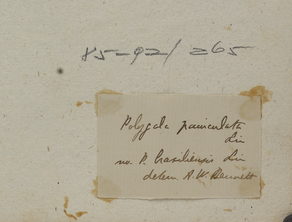 85-92/265
Polygala paniculata
Lin
no. P. brasiliensis Lin
determ. A. W. Bennett